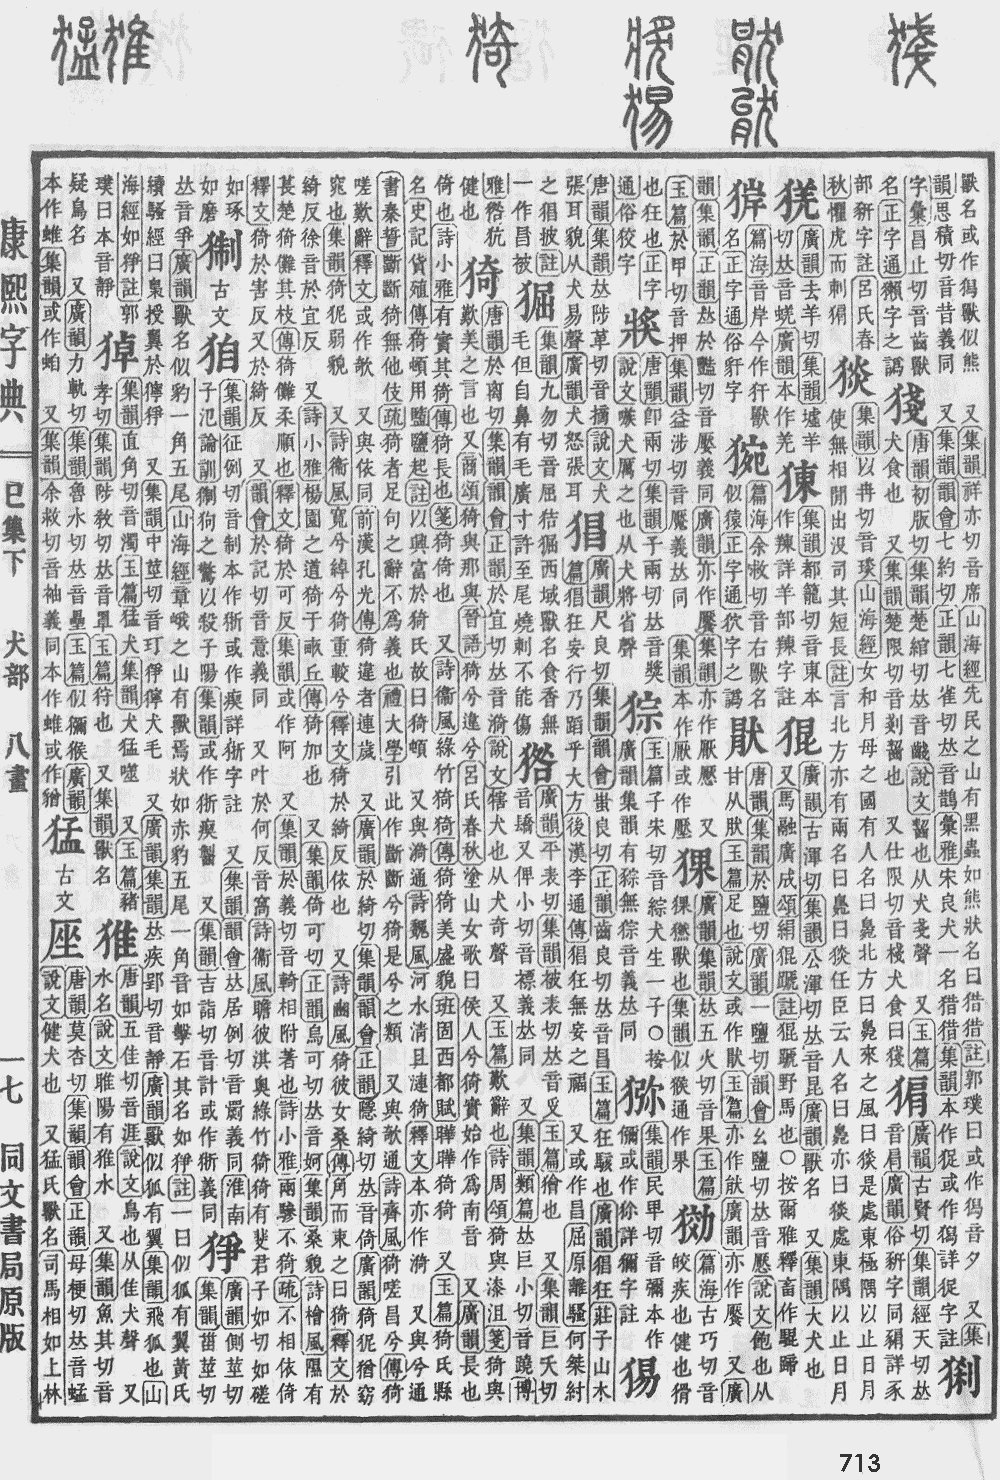 獸名或作猲獸似熊　又集韻祥亦切音席山海經先民之山有黑蟲如熊狀名曰猎猎註郭璞曰或作獡音夕　又集
韻思積切音昔義同　又集韻韻會七約切正韻七雀切𠀤音鵲彙雅宋良犬一名猎猎集韻本作㹱或作獡詳㹱字註
猁
字彙昌止切音齒獸
名正字通獺字之譌
猣
唐韻初版切集韻楚綰切𠀤音㦃說文齧也从犬戔聲　又玉篇
犬食也　又集韻楚限切音剗齧也　又仕限切音棧犬食曰猣
猏
廣韻古賢切集韻經天切𠀤
音肩廣韻俗豣字同豜詳豕
部豣字註呂氏春
秋懼虎而刺猏
猤
集韻以冉切音琰山海經女和月母之國有人名曰鳧北方曰鳧來之風曰猤是處東極隅以止日月
使無相閒出沒司其短長註言北方亦有兩名曰鳧曰猤任臣云人名曰鳧亦曰猤處東隅以止日月
猐
廣韻去羊切集韻墟羊
切𠀤音蜣廣韻本作羌
猍
集韻都籠切音東本
作羘詳羊部羘字註
猑
廣韻古渾切集韻公渾切𠀤音昆廣韻獸名　又集韻大犬也
又馬融廣成頌絹猑蹏註猑蹏野馬也○按爾雅釋畜作騉蹄
猂
篇海音岸今作犴獸
名正字通俗豻字
㹶
篇海余救切音右獸名
似猿正字通狖字之譌
猒
唐韻集韻於鹽切廣韻一鹽切韻會幺鹽切𠀤音懕說文飽也从
甘从肰玉篇足也說文或作猒玉篇亦作猒廣韻亦作饜　又廣
韻集韻正韻𠀤於豔切音厭義同廣韻亦作饜集韻亦作厭懕　又
玉篇於甲切音押集韻益涉切音魘義𠀤同　集韻本作厭或作壓
猓
廣韻集韻𠀤五火切音果玉篇
猓㺐獸也集韻似猴通作果
㺃
篇海古巧切音
皎疾也健也猾
也狂也正字
通俗狡字
㢡
唐韻卽兩切集韻子兩切𠀤音獎
說文嗾犬厲之也从犬將省聲
猔
玉篇子宋切音綜犬生一子○按
廣韻集韻有猔無猔音義𠀤同
猕
集韻民畢切音彌本作
獼或作㹯詳獼字註
猲
唐韻集韻𠀤陟革切音摘說文犬
張耳貌从犬易聲廣韻犬怒張耳
猖
廣韻尺良切集韻韻會蚩良切正韻齒良切𠀤音昌玉篇狂駭也廣韻猖狂莊子山木
篇猖狂妄行乃蹈乎大方後漢李通傳猖狂無妄之福　又或作昌屈原離騷何桀紂
之猖披註
一作昌被
㹿
集韻九勿切音屈狤㹿西域獸名食香無
毛但自鼻有毛廣寸許至尾燒刺不能傷
㺉
廣韻平表切集韻被表切𠀤音殍玉篇獪也　又集韻巨夭切
音矯又俾小切音標義𠀤同　又集韻類篇𠀤巨小切音蹻博
雅㺉犺
健也
猗
唐韻於離切集韻韻會正韻於宜切𠀤音漪說文犗犬也从犬奇聲　又玉篇歎辭也詩周頌猗與漆沮箋猗與
歎美之言也又商頌猗與那與晉語猗兮違兮　呂氏春秋塗山女歌曰侯人兮猗實始作爲南音　又廣韻長也
倚也詩小雅有實其猗傳猗長也箋猗倚也　又詩衞風綠竹猗猗傳猗猗美盛貌班固西都賦曄曄猗猗　又玉篇猗氏縣
名史記貨殖傳猗頓用盬鹽起註以興富於猗氏故曰猗頓　又與漪通詩魏風河水清且漣猗釋文本亦作漪　又與兮通
書秦誓斷斷猗無他伎疏猗者足句之辭不爲義也禮大學引此作斷斷兮猗是兮之類　又與欹通詩齊風猗嗟昌兮傳猗
嗟歎辭釋文或作欹　又與依同前漢孔光傳猗違者連歲　又廣韻於綺切集韻韻會正韻隱綺切𠀤音倚廣韻猗狔猶窈
窕也集韻猗狔弱貌　又詩衞風寬兮綽兮猗重較兮釋文猗於綺反依也　又詩豳風猗彼女桑傳角而束之曰猗釋文於
綺反徐音於宜反　又詩小雅楊園之道猗于畝丘傳猗加也　又集韻倚可切正韻烏可切𠀤音妸集韻桑貌詩檜風隰有
萇楚猗儺其枝傳猗儺柔順也釋文猗於可反集韻或作阿　又集韻於義切音輢相附著也詩小雅兩驂不猗疏不相依倚
釋文猗於害反又於綺反　又韻會於記切音意義同　又叶於何反音窩詩衞風瞻彼淇奧綠竹猗猗有斐君子如切如磋
如琢
如磨
猘
古文
狛
集韻征例切音制本作狾或作瘈詳狾字註　又集韻韻會𠀤居例切音罽義同淮南
子氾論訓猘狗之驚以殺子陽集韻或作㾐瘈齧　又集韻吉詣切音計或作狾義同
猙
廣韻側莖切
集韻甾莖切
𠀤音爭廣韻獸名似豹一角五尾山海經章峩之山有獸焉狀如赤豹五尾一角音如擊石其名如猙註一曰似狐有翼黃氏
續騷經曰梟授翼於獰猙　又集韻中莖切音玎猙獰犬毛　又廣韻集韻𠀤疾郢切音靜廣韻獸似狐有翼集韻飛狐也山
海經如猙註郭
璞曰本音靜
㹿
集韻直角切音濁玉篇猛犬集韻犬猛噬　又玉篇豬
孝切集韻陟敎切𠀤音罩玉篇狩也　又集韻獸名
猚
唐韻五佳切音涯說文鳥也从隹犬聲　又
水名說文睢陽有猚水　又集韻魚其切音
疑鳥名　又廣韻力軌切集韻魯水切𠀤音壘玉篇似獼猴廣韻
本作蜼集韻或作蛕　又集韻余救切音袖義同本作蜼或作㺠
猛
古文
唐韻莫杏切集韻韻會正韻母梗切𠀤音蜢
說文健犬也　又猛氏獸名司馬相如上林
康熙字典　巳集下　犬部　八畫　一七　同文書局原版
713